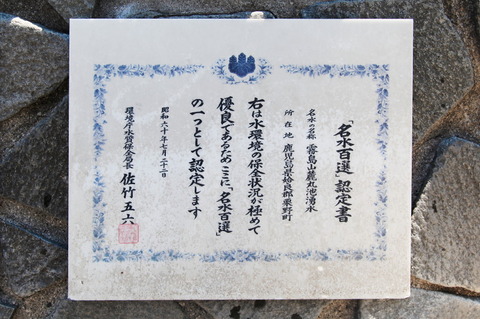 「名水百選」認定書
名水の名称 霧島山麓丸池湧水
所在地 鹿児島県姶良郡栗野町
右は水環境の保全状況が極めて
優良であるためここに、「名水百選」
の一つとして認定します
昭和六十年七月二十二日
環境庁水質保全局長 佐竹五六